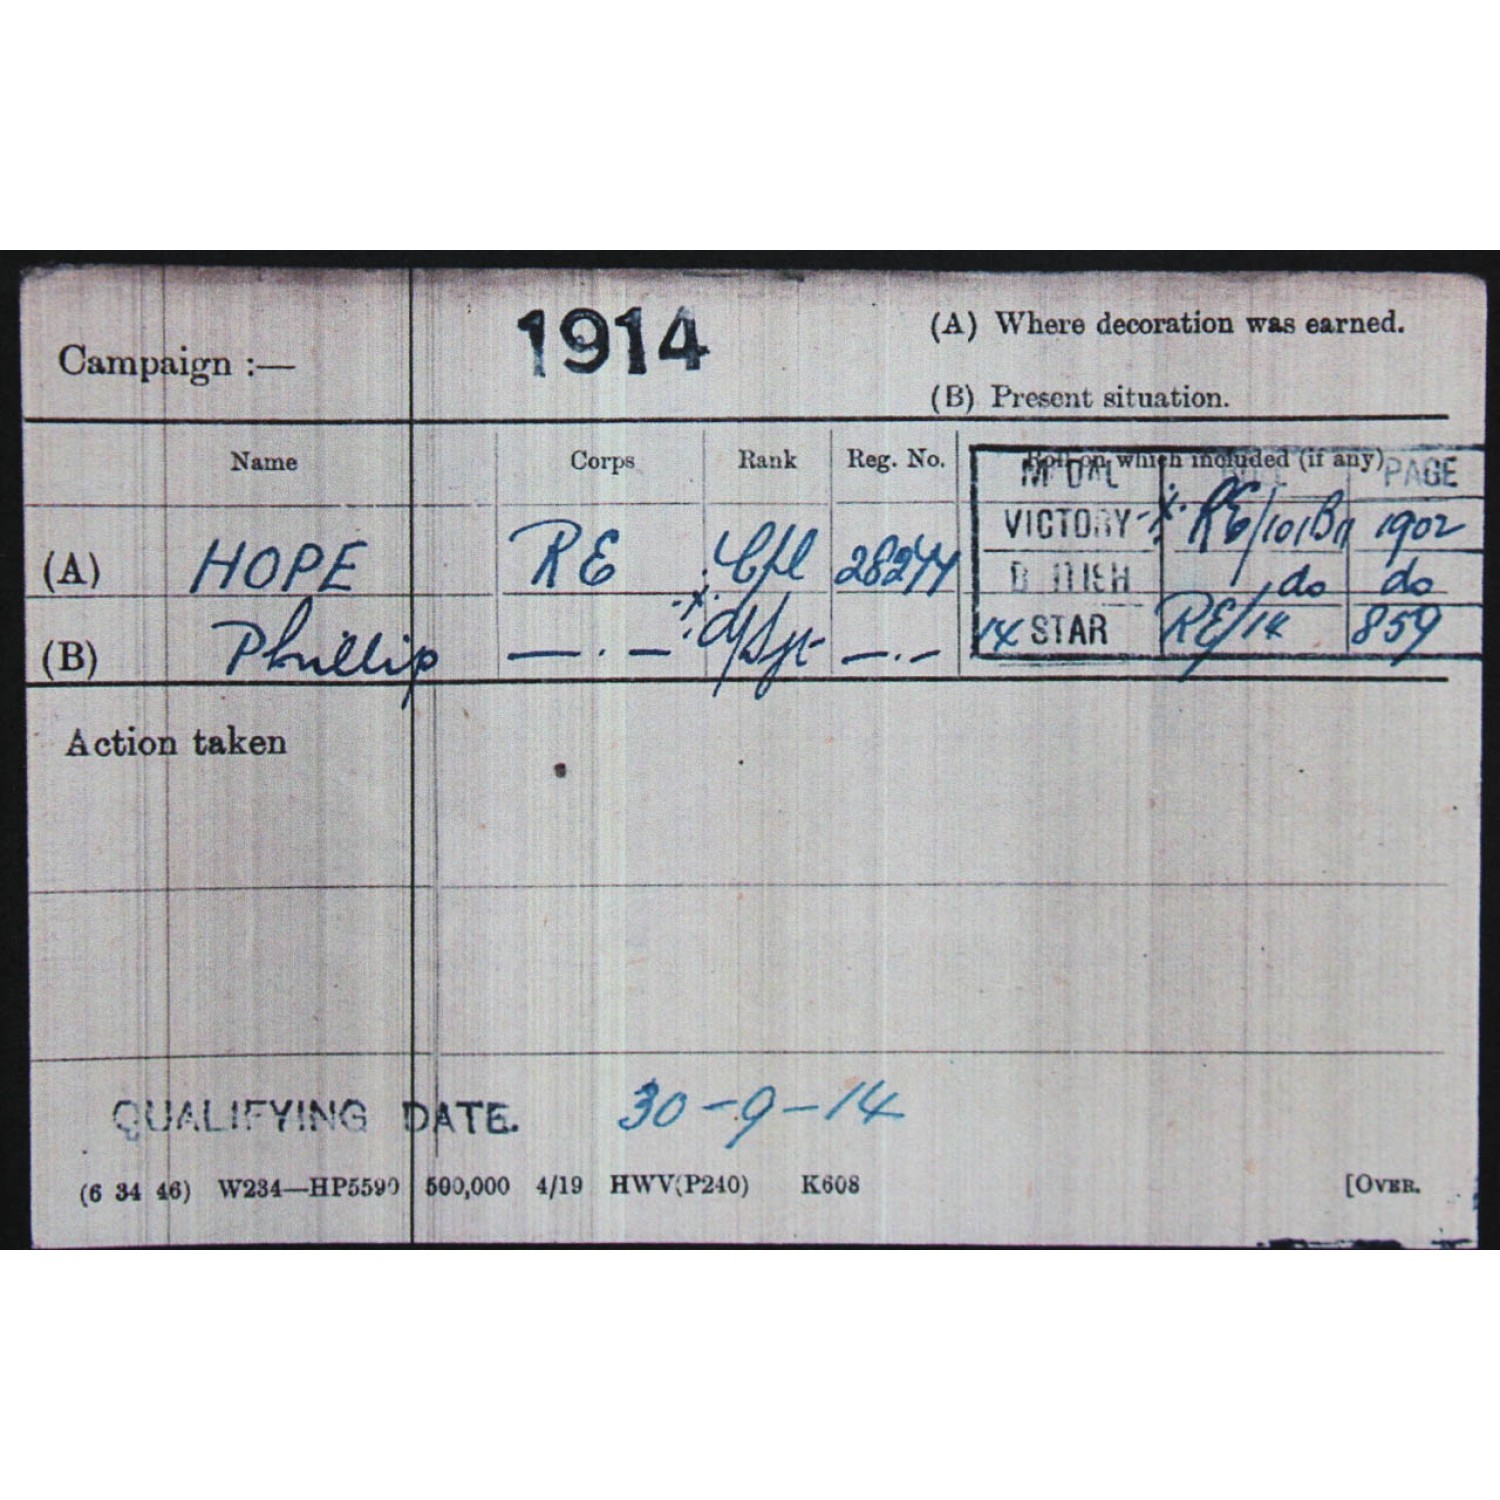 Campaign :— 1914
(A) Where decoration was earned.
(B) Present situation.
Name Corps Rank Reg. No. Roll on which included (if any)
MEDAL ROLL PAGE
VICTORY -x- RE/101B11 1902
BRITISH do do
14 STAR RE/14 859
(A) HOPE RE Cpl 28244
(B) Phillip — . — -x- A/Sgt — . —
Action taken
QUALIFYING DATE. 30-9-14
(6 34 46) W234—HP5590 500,000 4/19 HWV(P240) K608 [OVER.